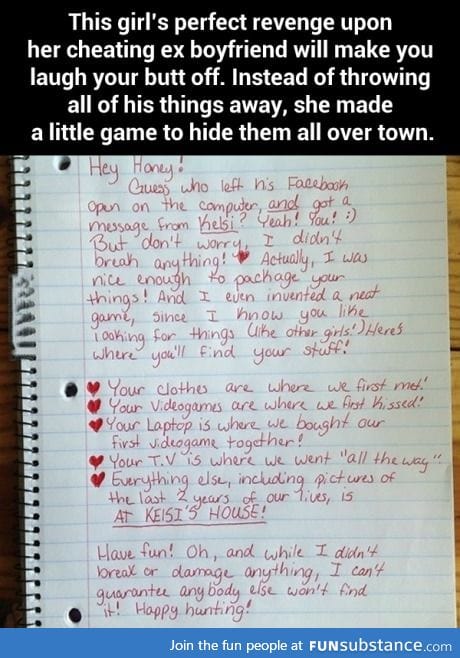 This girl's perfect revenge upon
her cheating ex boyfriend will make you
laugh your butt off. Instead of throwing
all of his things away, she made
a little game to hide them all over town.
Hey Honey!
Guess who left his Facebook
open on the computer, and got a
message from Kelsi? Yeah! You! :)
But don't worry, I didn't
break anything! ♥ Actually, I was
nice enough to package your
things! And I even invented a neat
game, since I know you like
looking for things (like other girls!) Here's
where you'll find your stuff!
♥ Your clothes are where we first met!
♥ Your Videogames are where we first kissed!
♥ Your Laptop is where we bought our
first videogame together!
♥ Your T.V is where we went "all the way".
♥ Everything else, including pictures of
the last 2 years of our lives, is
AT KELSI'S HOUSE!
Have fun! Oh, and while I didn't
break or damage anything, I can't
guarantee anybody else won't find
it! Happy hunting!
Join the fun people at FUNsubstance.com